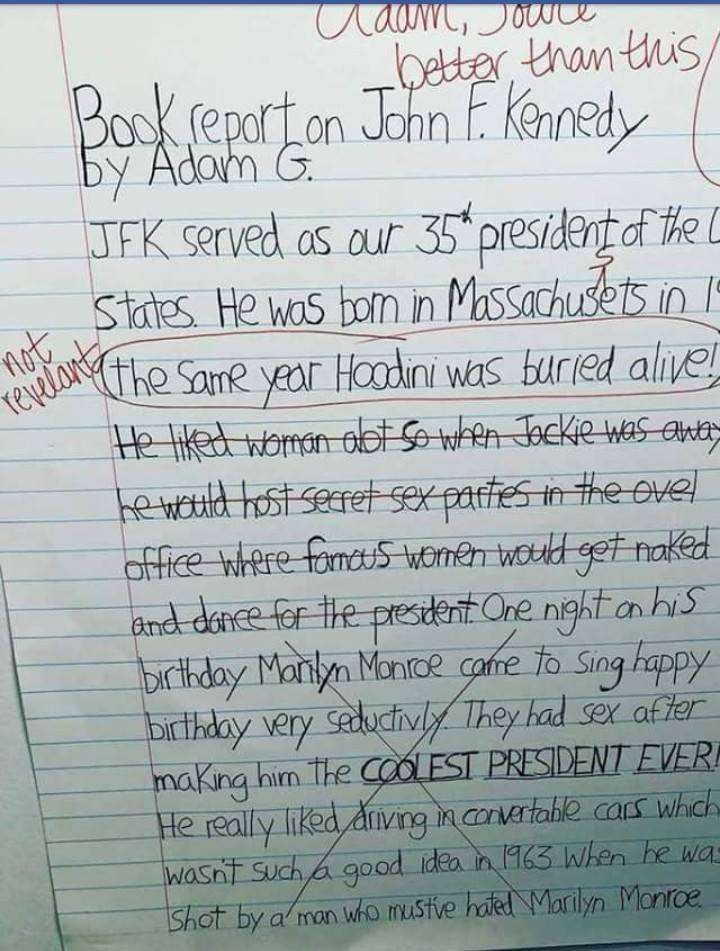 Adam, you're
better than this
Book report on John F. Kennedy
by Adam G.
JFK served as our 35th president of the
States. He was born in Massachusets in 19
s
not
revelant
(the same year Hoodini was buried alive!)
He liked woman alot so when Jackie was away
he would host secret sex parties in the ovel
office where famous women would get naked
and dance for the president. One night on his
birthday Marilyn Monroe came to sing happy
birthday very seductivly. They had sex after
making him the COOLEST PRESIDENT EVER!
He really liked driving in convertable cars which
wasn't such a good idea in 1963 when he was
shot by a man who mustive hated Marilyn Monroe.